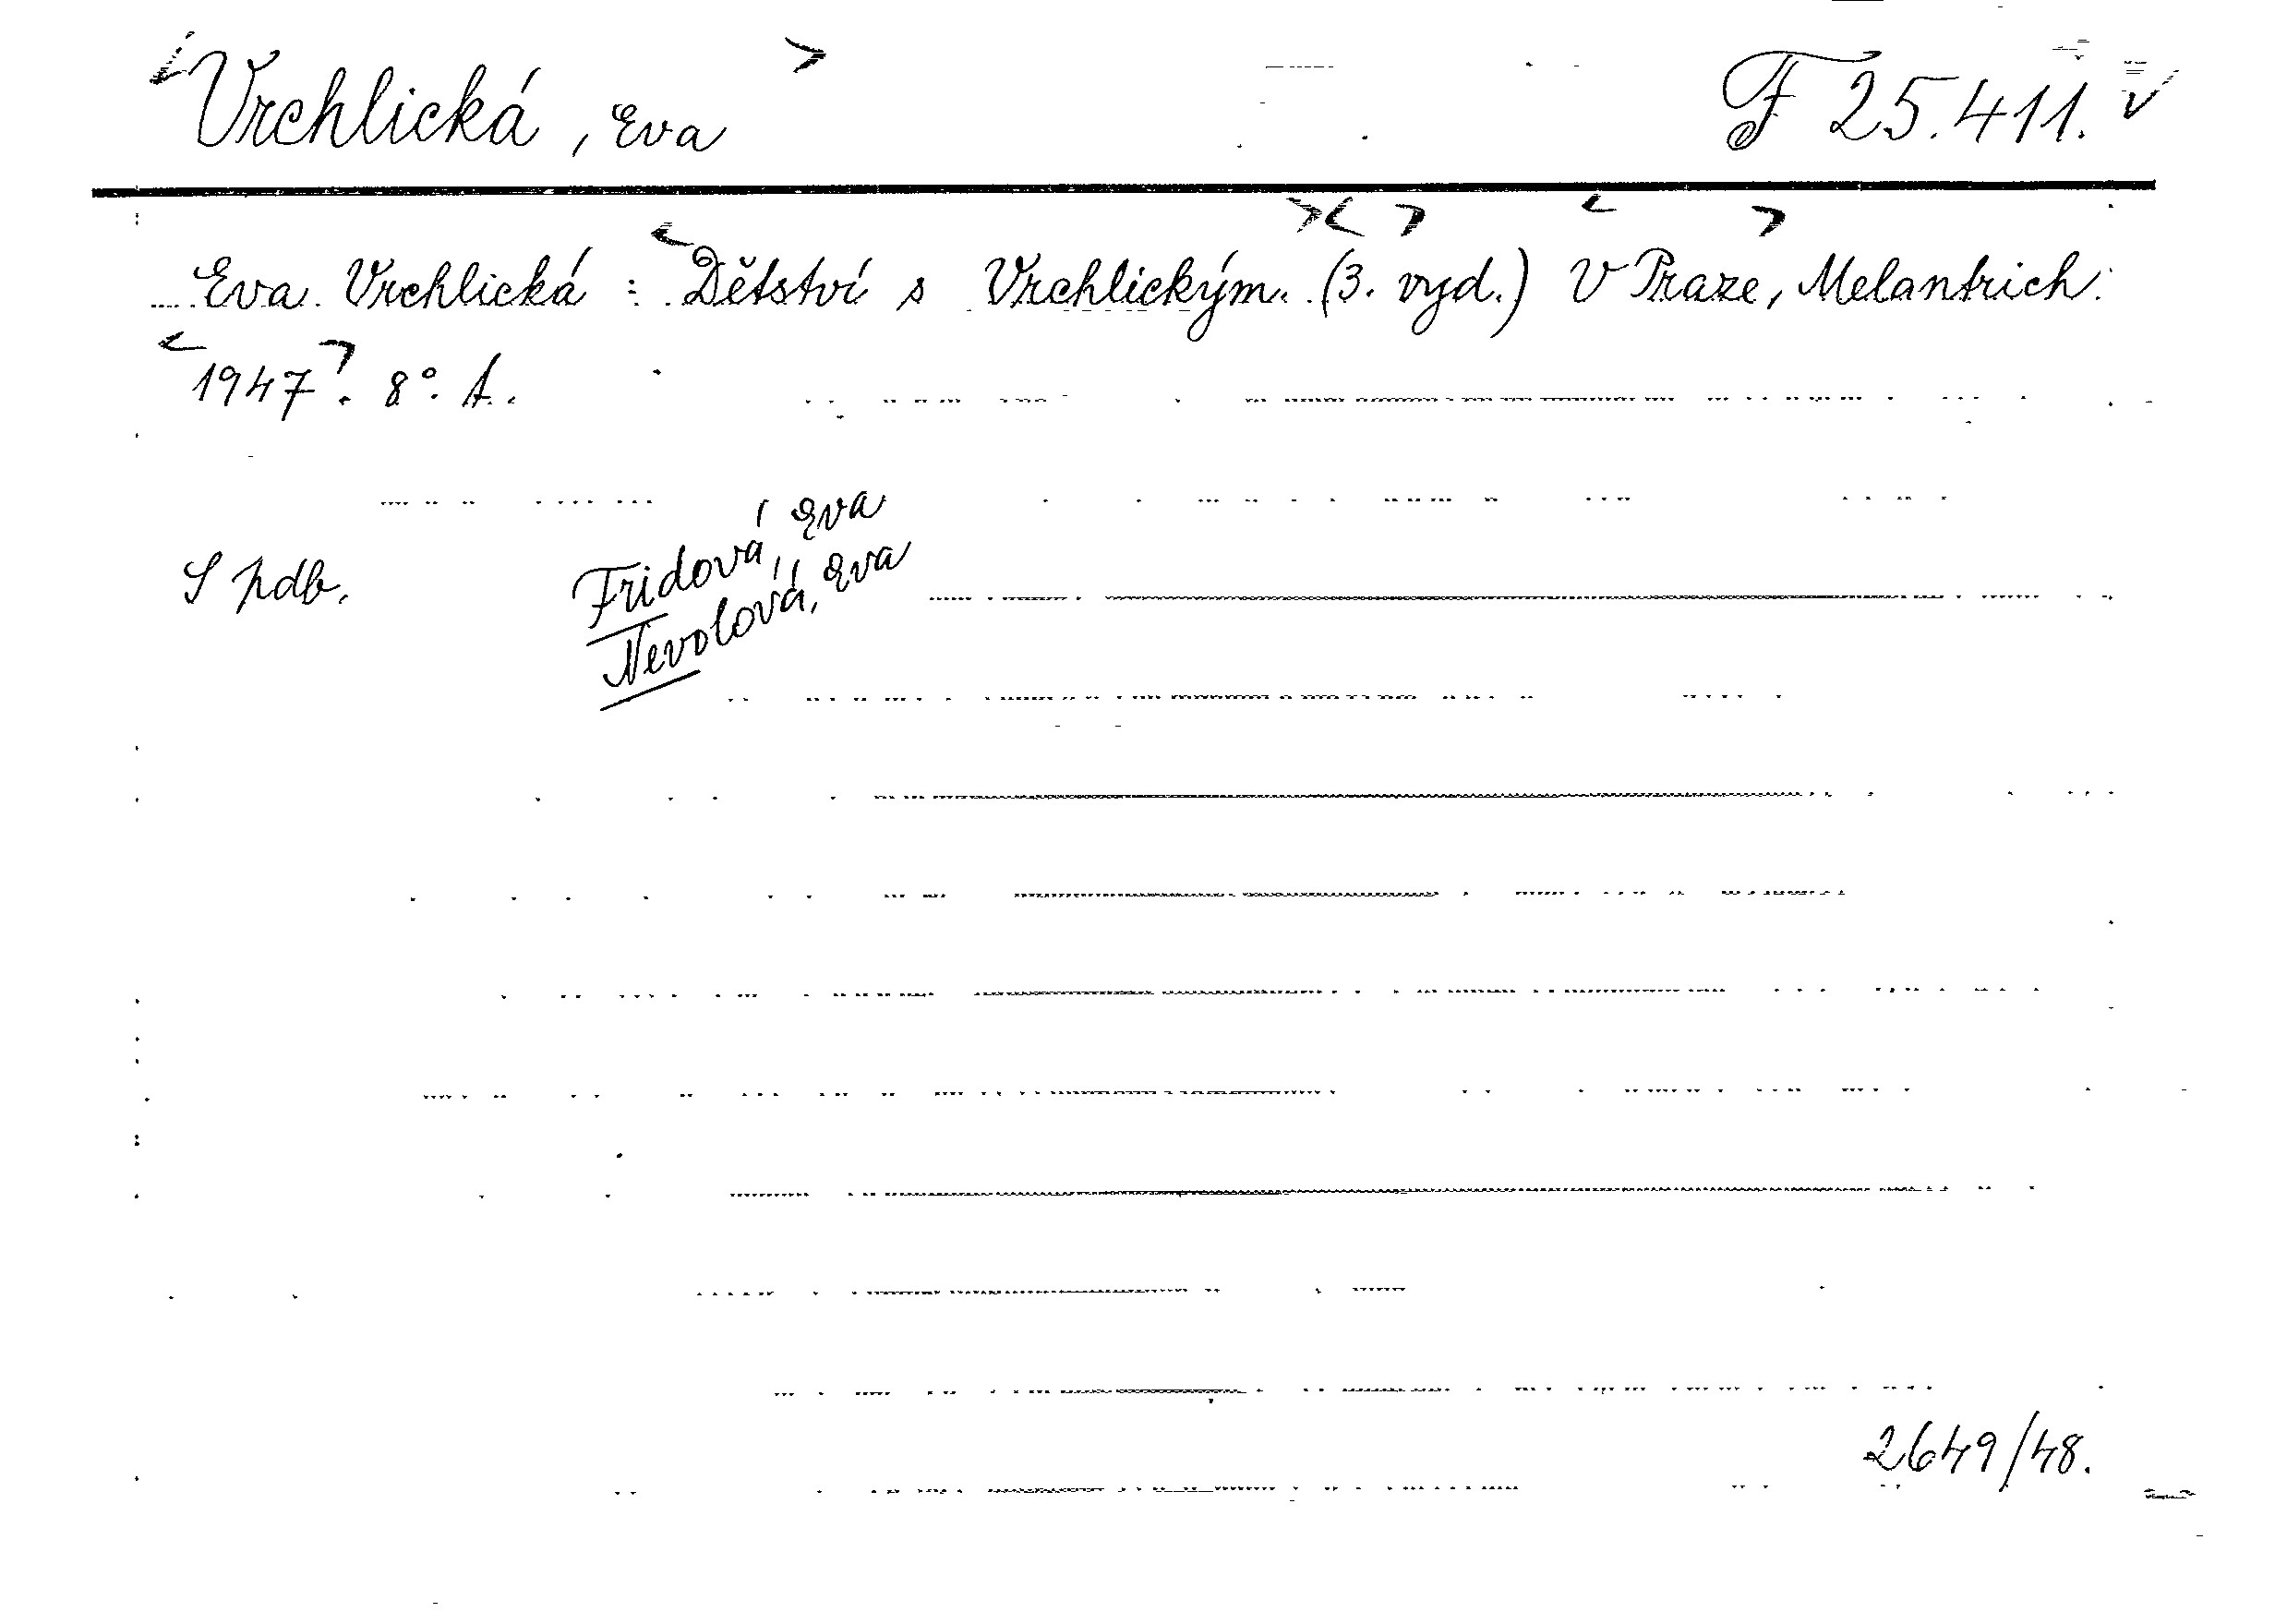 Vrchlická, Eva F 25.411.
Eva Vrchlická : Dětství s Vrchlickým. (3. vyd.) V Praze, Melantrich.
1947. 8°. A.
Fridová, Eva
S pdb.
Nevolová, Eva
2649/48.